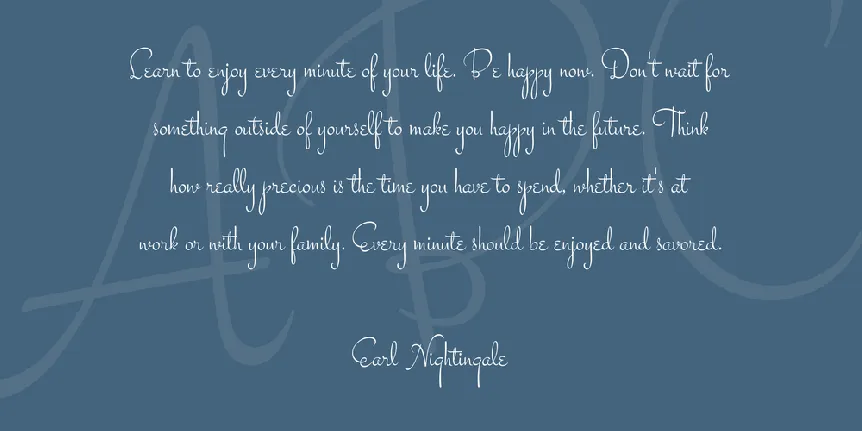 Learn to enjoy every minute of your life. Be happy now. Don't wait for
something outside of yourself to make you happy in the future. Think
how really precious is the time you have to spend, whether it's at
work or with your family. Every minute should be enjoyed and savored.
Earl Nightingale
ABC